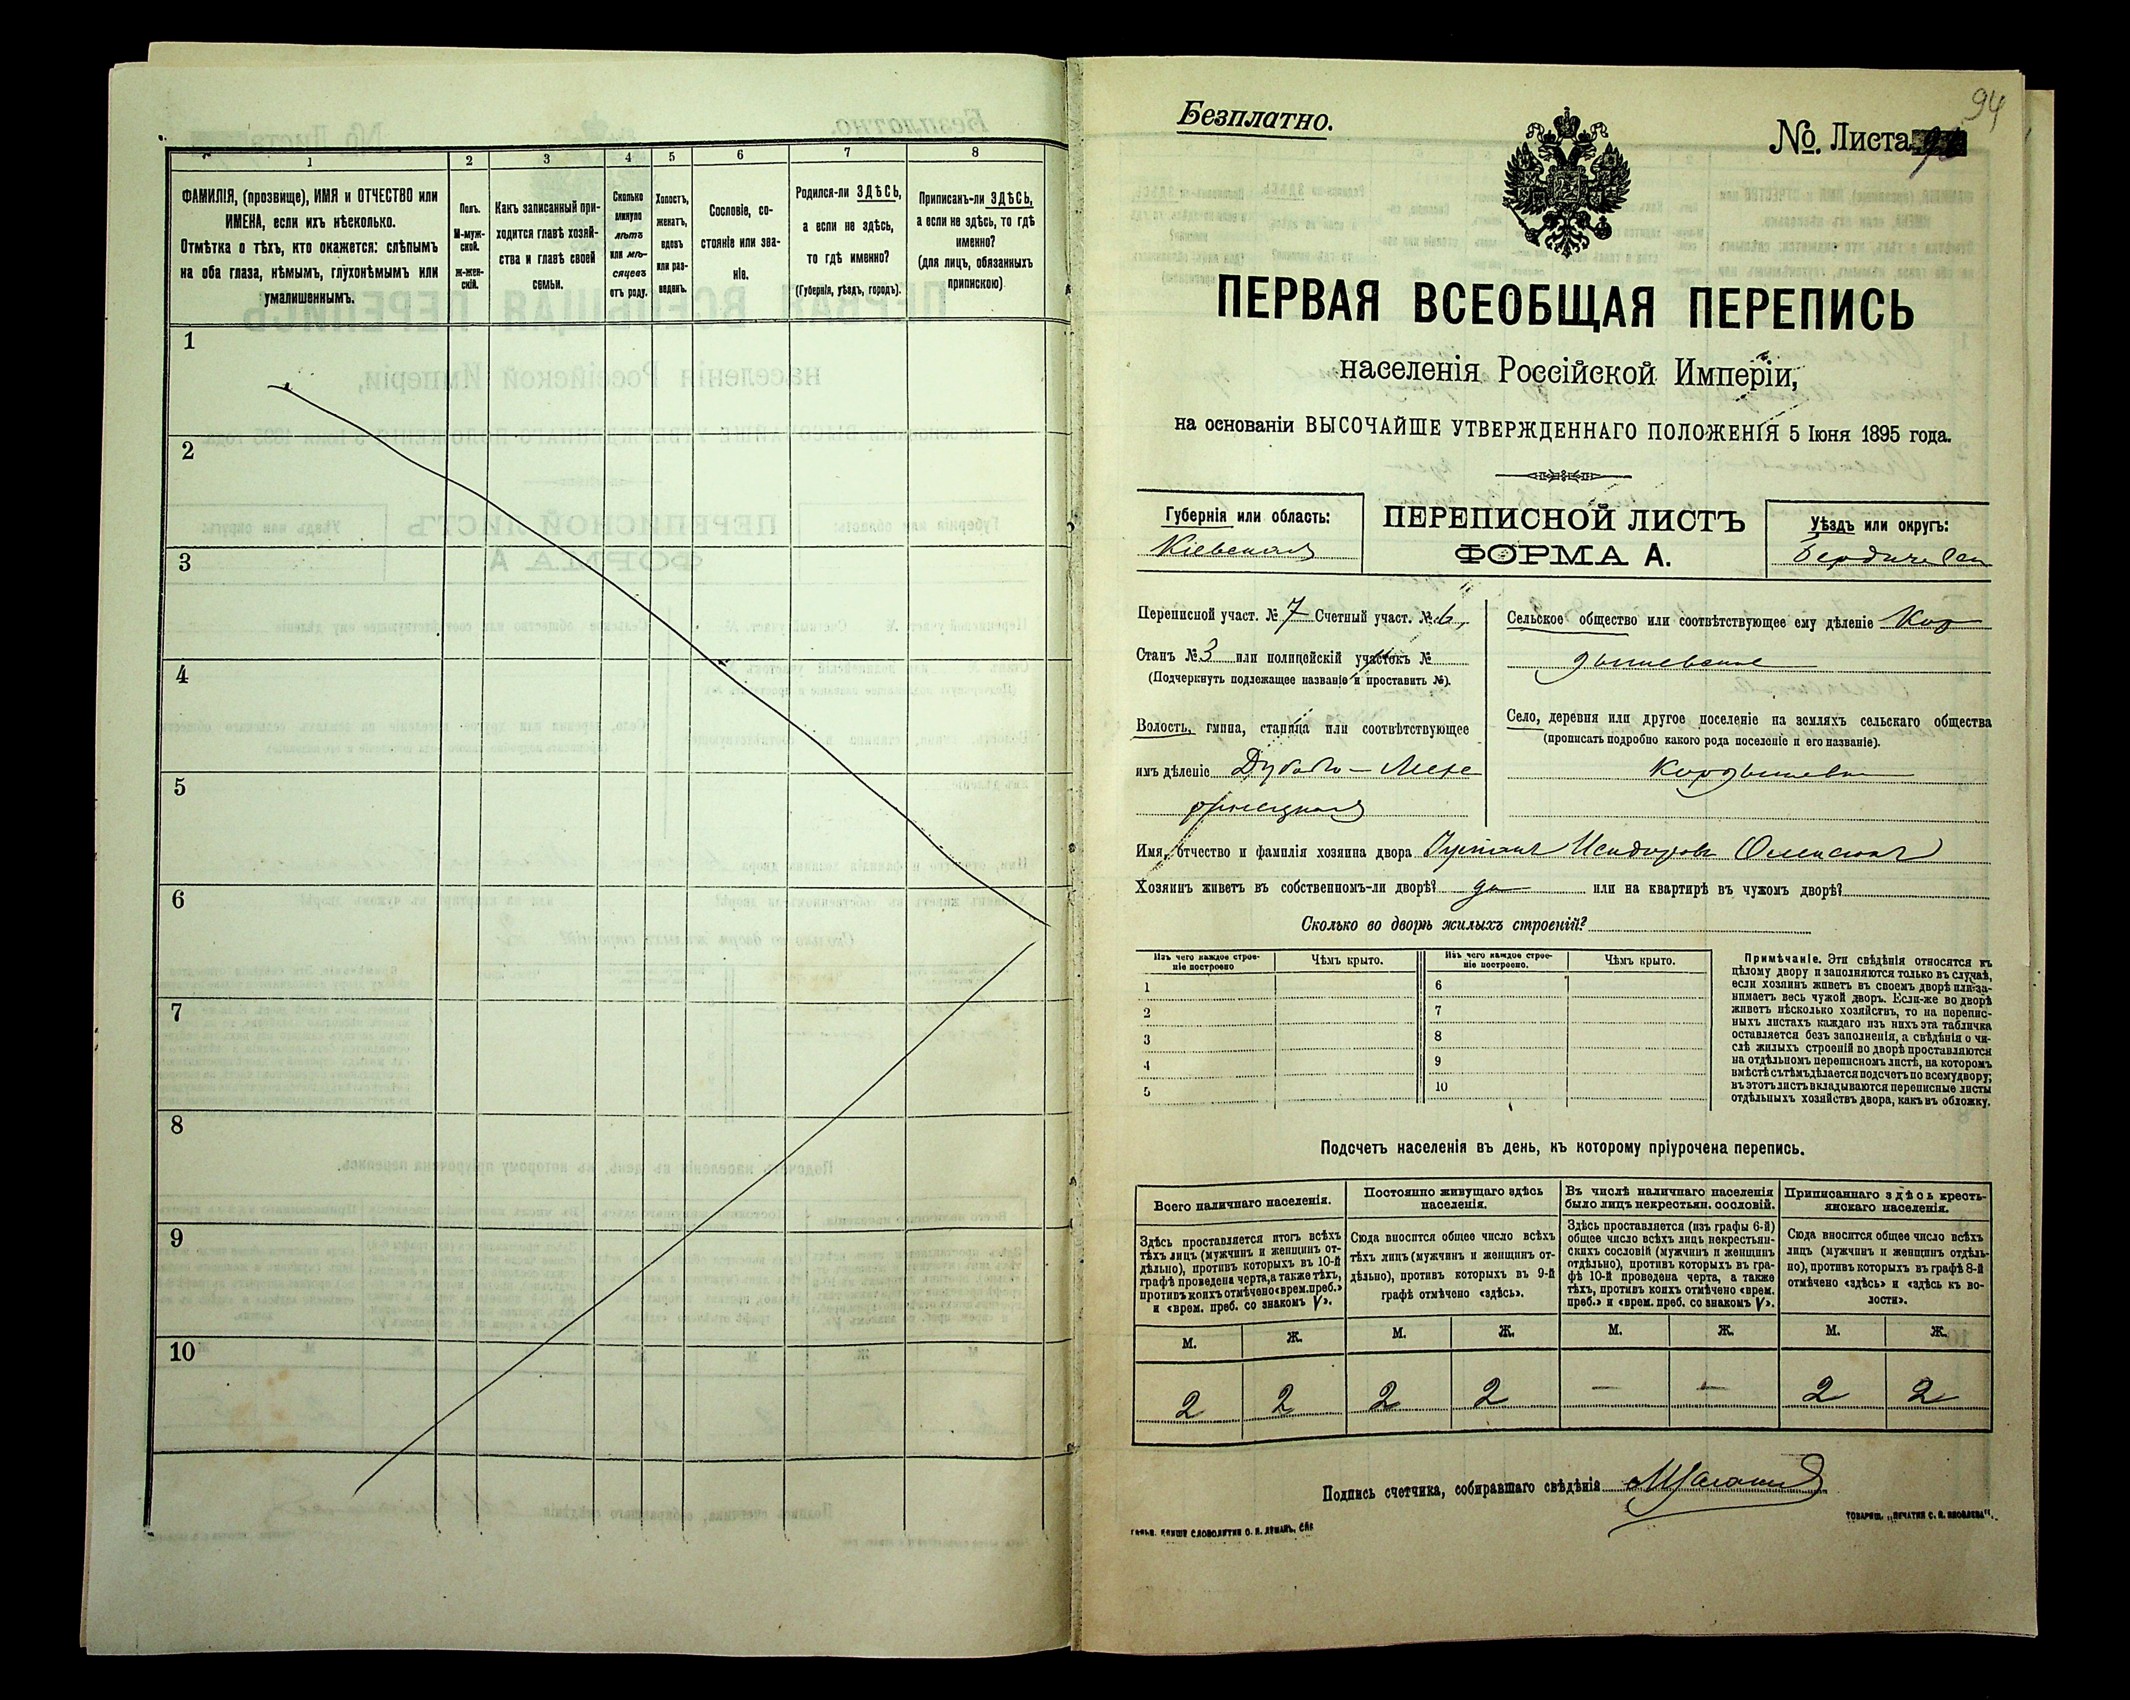 1
2
3
4
5
6
7
8
ФАМИЛІЯ, (прозвище), ИМЯ и ОТЧЕСТВО или
ИМЕНА, если ихъ нѣсколько.
Отмѣтка о тѣхъ, кто окажется: слѣпымъ
на оба глаза, нѣмымъ, глухонѣмымъ или
умалишеннымъ.
Полъ.
М-муж-
ской.
Ж-жен-
скій.
Какъ записанный при-
ходится главѣ хозяй-
ства и главѣ своей
семьи.
Сколько
минуло
лѣтъ
или мѣ-
сяцевъ
отъ роду.
Холостъ,
женатъ,
вдовъ
или раз-
веденъ.
Сословіе, со-
стояніе или зва-
ніе.
Родился-ли ЗДѢСЬ,
а если не здѣсь,
то гдѣ именно?
(Губернія, уѣздъ, городъ).
Приписанъ-ли ЗДѢСЬ,
а если не здѣсь, то гдѣ
именно?
(для лицъ, обязанныхъ
припискою)
1
2
3
4
5
6
7
8
9
10
94
Безплатно.
№ Листа
ПЕРВАЯ ВСЕОБЩАЯ ПЕРЕПИСЬ
населенія Россійской Имперіи,
на основаніи ВЫСОЧАЙШЕ УТВЕРЖДЕННАГО ПОЛОЖЕНІЯ 5 Іюня 1895 года.
Губернія или область:
Кіевская
ПЕРЕПИСНОЙ ЛИСТЪ
ФОРМА А.
Уѣздъ или округъ:
Бердичевск
Переписной участ. № 7 Счетный участ. № 6,
Станъ № 3 или полицейскій участокъ №
(Подчеркнуть подлежащее названіе и проставить №).
Волость, гмина, станица или соотвѣтствующее
имъ дѣленіе
Сельское общество или соотвѣтствующее ему дѣленіе Кор
дышевское
Село, деревня или другое поселеніе на земляхъ сельскаго общества
(прописать подробно какого рода поселеніе и его названіе).
Кордышевка
Имя, отчество и фамилія хозяина двора Исидоровъ
Хозяинъ живетъ въ собственномъ-ли дворѣ? да или на квартирѣ въ чужомъ дворѣ?
Сколько во дворѣ жилыхъ строеній?
Изъ чего каждое строе-
ніе построено
Чѣмъ крыто.
Изъ чего каждое строе-
ніе построено.
Чѣмъ крыто.
1
2
3
4
5
6
7
8
9
10
Примѣчаніе. Эти свѣдѣнія относятся къ
цѣлому двору и заполняются только въ случаѣ,
если хозяинъ живетъ въ своемъ дворѣ или за-
нимаетъ весь чужой дворъ. Если-же во дворѣ
живетъ нѣсколько хозяйствъ, то на перепис-
ныхъ листахъ каждаго изъ нихъ эта табличка
оставляется безъ заполненія, а свѣдѣнія о чи-
слѣ жилыхъ строеній во дворѣ проставляются
на отдѣльномъ переписномъ листѣ, на которомъ
вмѣстѣ съ тѣмъ дѣлается подсчетъ по всему двору;
въ этотъ листъ вкладываются переписные листы
отдѣльныхъ хозяйствъ двора, какъ въ обложку.
Подсчетъ населенія въ день, къ которому пріурочена перепись.
Всего наличнаго населенія.
Здѣсь проставляется итогъ всѣхъ
тѣхъ лицъ (мужчинъ и женщинъ от-
дѣльно), противъ которыхъ въ 10-й
графѣ проведена черта, а также тѣхъ,
противъ коихъ отмѣчено «врем. преб.»
и «врем. преб. со знакомъ V».
Постоянно живущаго здѣсь
населенія.
Сюда вносится общее число всѣхъ
тѣхъ лицъ (мужчинъ и женщинъ от-
дѣльно), противъ которыхъ въ 9-й
графѣ отмѣчено «здѣсь».
Въ числѣ наличнаго населенія
было лицъ некрестьян. сословій.
Здѣсь проставляется (изъ графы 6-й)
общее число всѣхъ лицъ некрестьян-
скихъ сословій (мужчинъ и женщинъ
отдѣльно), противъ которыхъ въ гра-
фѣ 10-й проведена черта, а также
тѣхъ, противъ коихъ отмѣчено «врем.
преб.» и «врем. преб. со знакомъ V».
Приписаннаго здѣсь кресть-
янскаго населенія.
Сюда вносится общее число всѣхъ
лицъ (мужчинъ и женщинъ отдѣль-
но), противъ которыхъ въ графѣ 8-й
отмѣчено «здѣсь» и «здѣсь къ во-
лости».
М. Ж. М. Ж. М. Ж. М. Ж.
2 2 2 2 — — 2 2
Подпись счетчика, собиравшаго свѣдѣнія
СЛОВОЛИТНИ О. И. ЛЕМАНЪ, СПБ
ТОВАРИЩ. „ПЕЧАТНЯ С. П. ЯКОВЛЕВА".